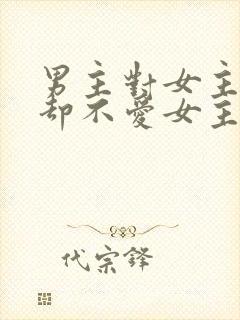 男主對女主
却不愛女主
代宗鋒